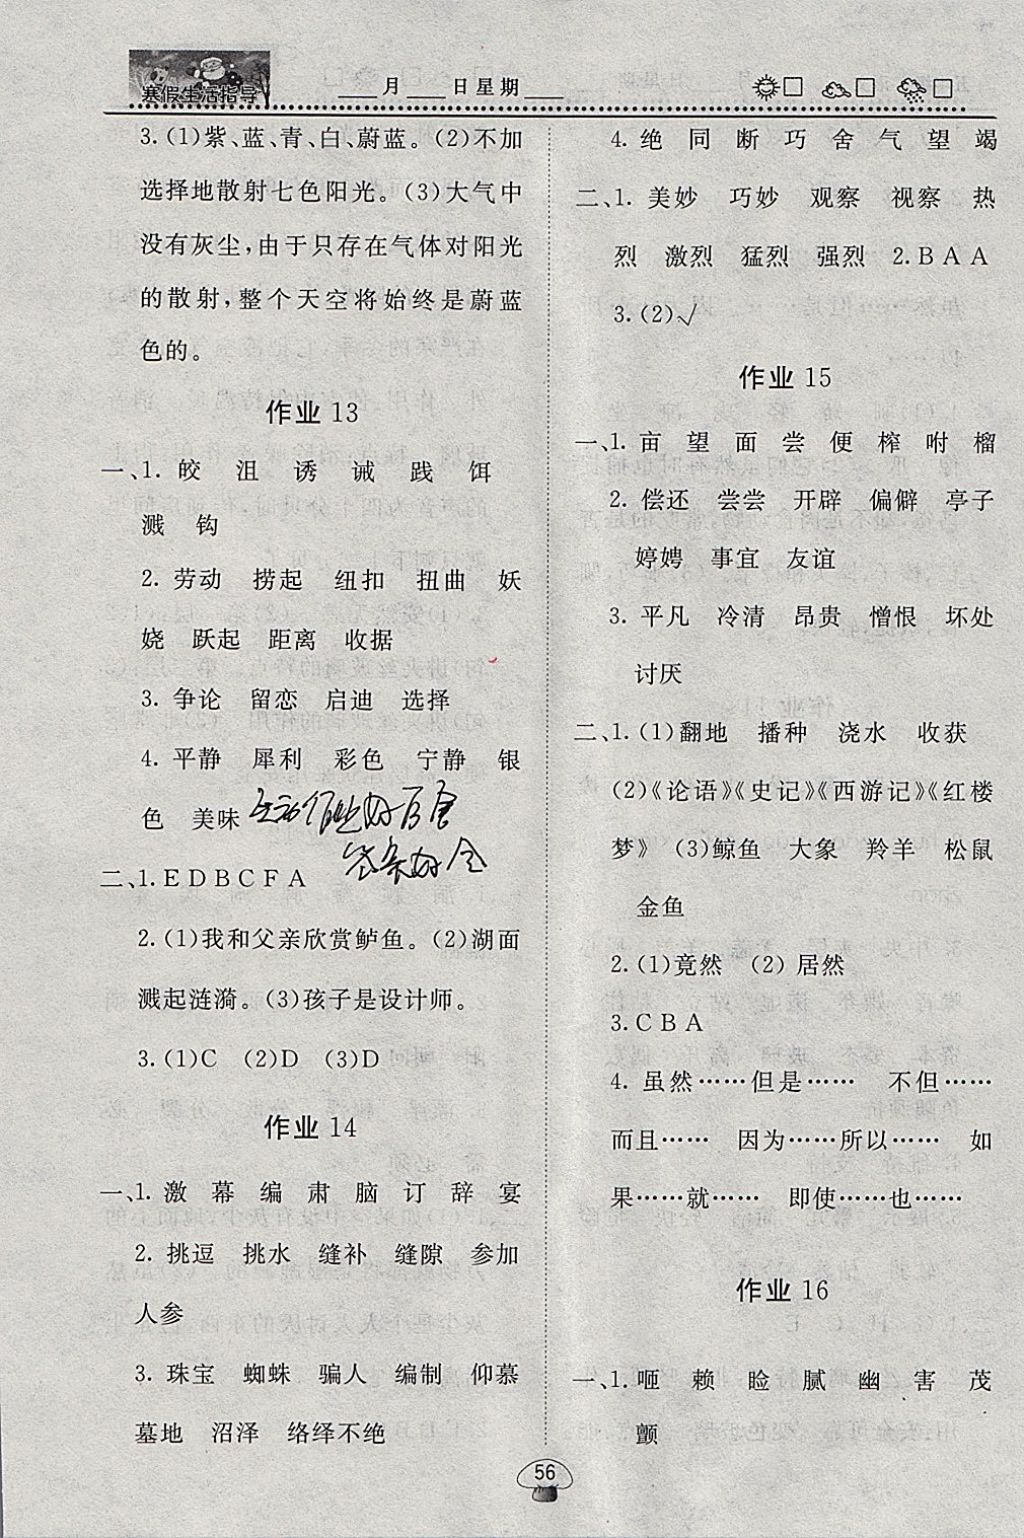 寒假生活指导
月 日星期
3.(1)紫、蓝、青、白、蔚蓝。(2)不加
选择地散射七色阳光。(3)大气中
没有灰尘,由于只存在气体对阳光
的散射,整个天空将始终是蔚蓝
色的。
作业 13
一、1. 皎 沮 诱 诫 践 饵
溅 钩
2. 劳动 捞起 纽扣 扭曲 妖
娆 跃起 距离 收据
3. 争论 留恋 启迪 选择
4. 平静 犀利 彩色 宁静 银
色 美味
二、1. E D B C F A
2.(1)我和父亲欣赏鲈鱼。(2)湖面
溅起涟漪。(3)孩子是设计师。
3.(1)C (2)D (3)D
作业 14
一、1. 激 幕 编 肃 脑 订 辞 宴
2. 挑逗 挑水 缝补 缝隙 参加
人参
3. 珠宝 蜘蛛 骗人 编制 仰慕
墓地 沼泽 络绎不绝
4. 绝 同 断 巧 舍 气 望 竭
二、1. 美妙 巧妙 观察 视察 热
烈 激烈 猛烈 强烈 2. B A A
3.(2)√
作业 15
一、1. 亩 望 面 尝 便 榨 咐 榴
2. 偿还 尝尝 开辟 偏僻 亭子
婷娉 事宜 友谊
3. 平凡 冷清 昂贵 憎恨 坏处
讨厌
二、1.(1)翻地 播种 浇水 收获
(2)《论语》《史记》《西游记》《红楼
梦》 (3)鲸鱼 大象 羚羊 松鼠
金鱼
2.(1)竟然 (2) 居然
3. C B A
4. 虽然……但是…… 不但……
而且…… 因为……所以…… 如
果……就…… 即使……也……
作业 16
一、1. 咂 赖 睑 腻 幽 害 茂
颤
56